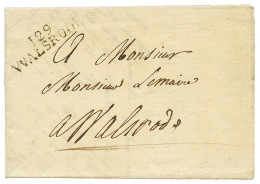 129
WALSRODE
A Monsieur
Monsieur Lemaire
a Walsrode